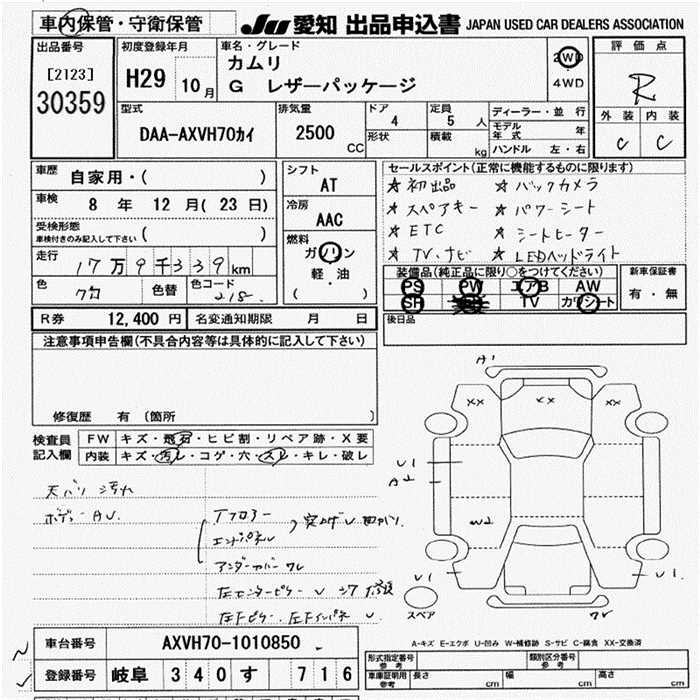 車内保管・守衛保管
JU 愛知 出品申込書 JAPAN USED CAR DEALERS ASSOCIATION
出品番号
[2123]
30359
初度登録年月
H29 10月
車名・グレード
カムリ
G レザーパッケージ
2WD
4WD
評価点
R
外装 内装
C C
型式
DAA-AXVH70ｶｲ
排気量
2500 CC
ドア 4
形状
定員 5 人
積載 kg
ディーラー・並行
モデル年式 年
ハンドル 左・右
車歴 自家用・( )
車検 8 年 12 月( 23 日)
受検形態
車検付きのみ記入して下さい ( )
走行 17万9千339km
色 クロ 色替 色コード 218
シフト
AT
冷房
AAC
燃料
ガソリン
軽・油
( )
セールスポイント(正常に機能するものに限ります)
★ 初出品 ★ バックカメラ
★ スペアキー ★ パワーシート
★ ETC ★ シートヒーター
★ TV、ナビ ★ LEDヘッドライト
装備品(純正品に限り○をつけてください)
PS PW エアB AW
SR TV カワシート
新車保証書
有・無
R券 12,400 円 名変通知期限 月 日
後日品
注意事項申告欄(不具合内容等は具体的に記入して下さい)
修復歴 有 (箇所 )
検査員記入欄
FW キズ・飛石・ヒビ割・リペア跡・X要
内装 キズ・汚レ・コゲ・穴・スレ・キレ・破レ
天バリ 汚れ
ボデーAU
Tフロアー
エンドパネル
突上げU
アンダーカバー ワレ
左センターピラー U
左Fピラー、左Fインパネ U
A1
XX XX XX
U1
A2
W2
U1 U1
スペア
A-キズ E-エクボ U-凹み W-補修跡 S-サビ C-腐食 XX-交換済
車台番号 AXVH70-1010850
登録番号 岐阜 340 す 716
形式指定番号 参考
類別区分番号 参考
車庫証明用 参考 長さ cm 幅 cm 高さ cm